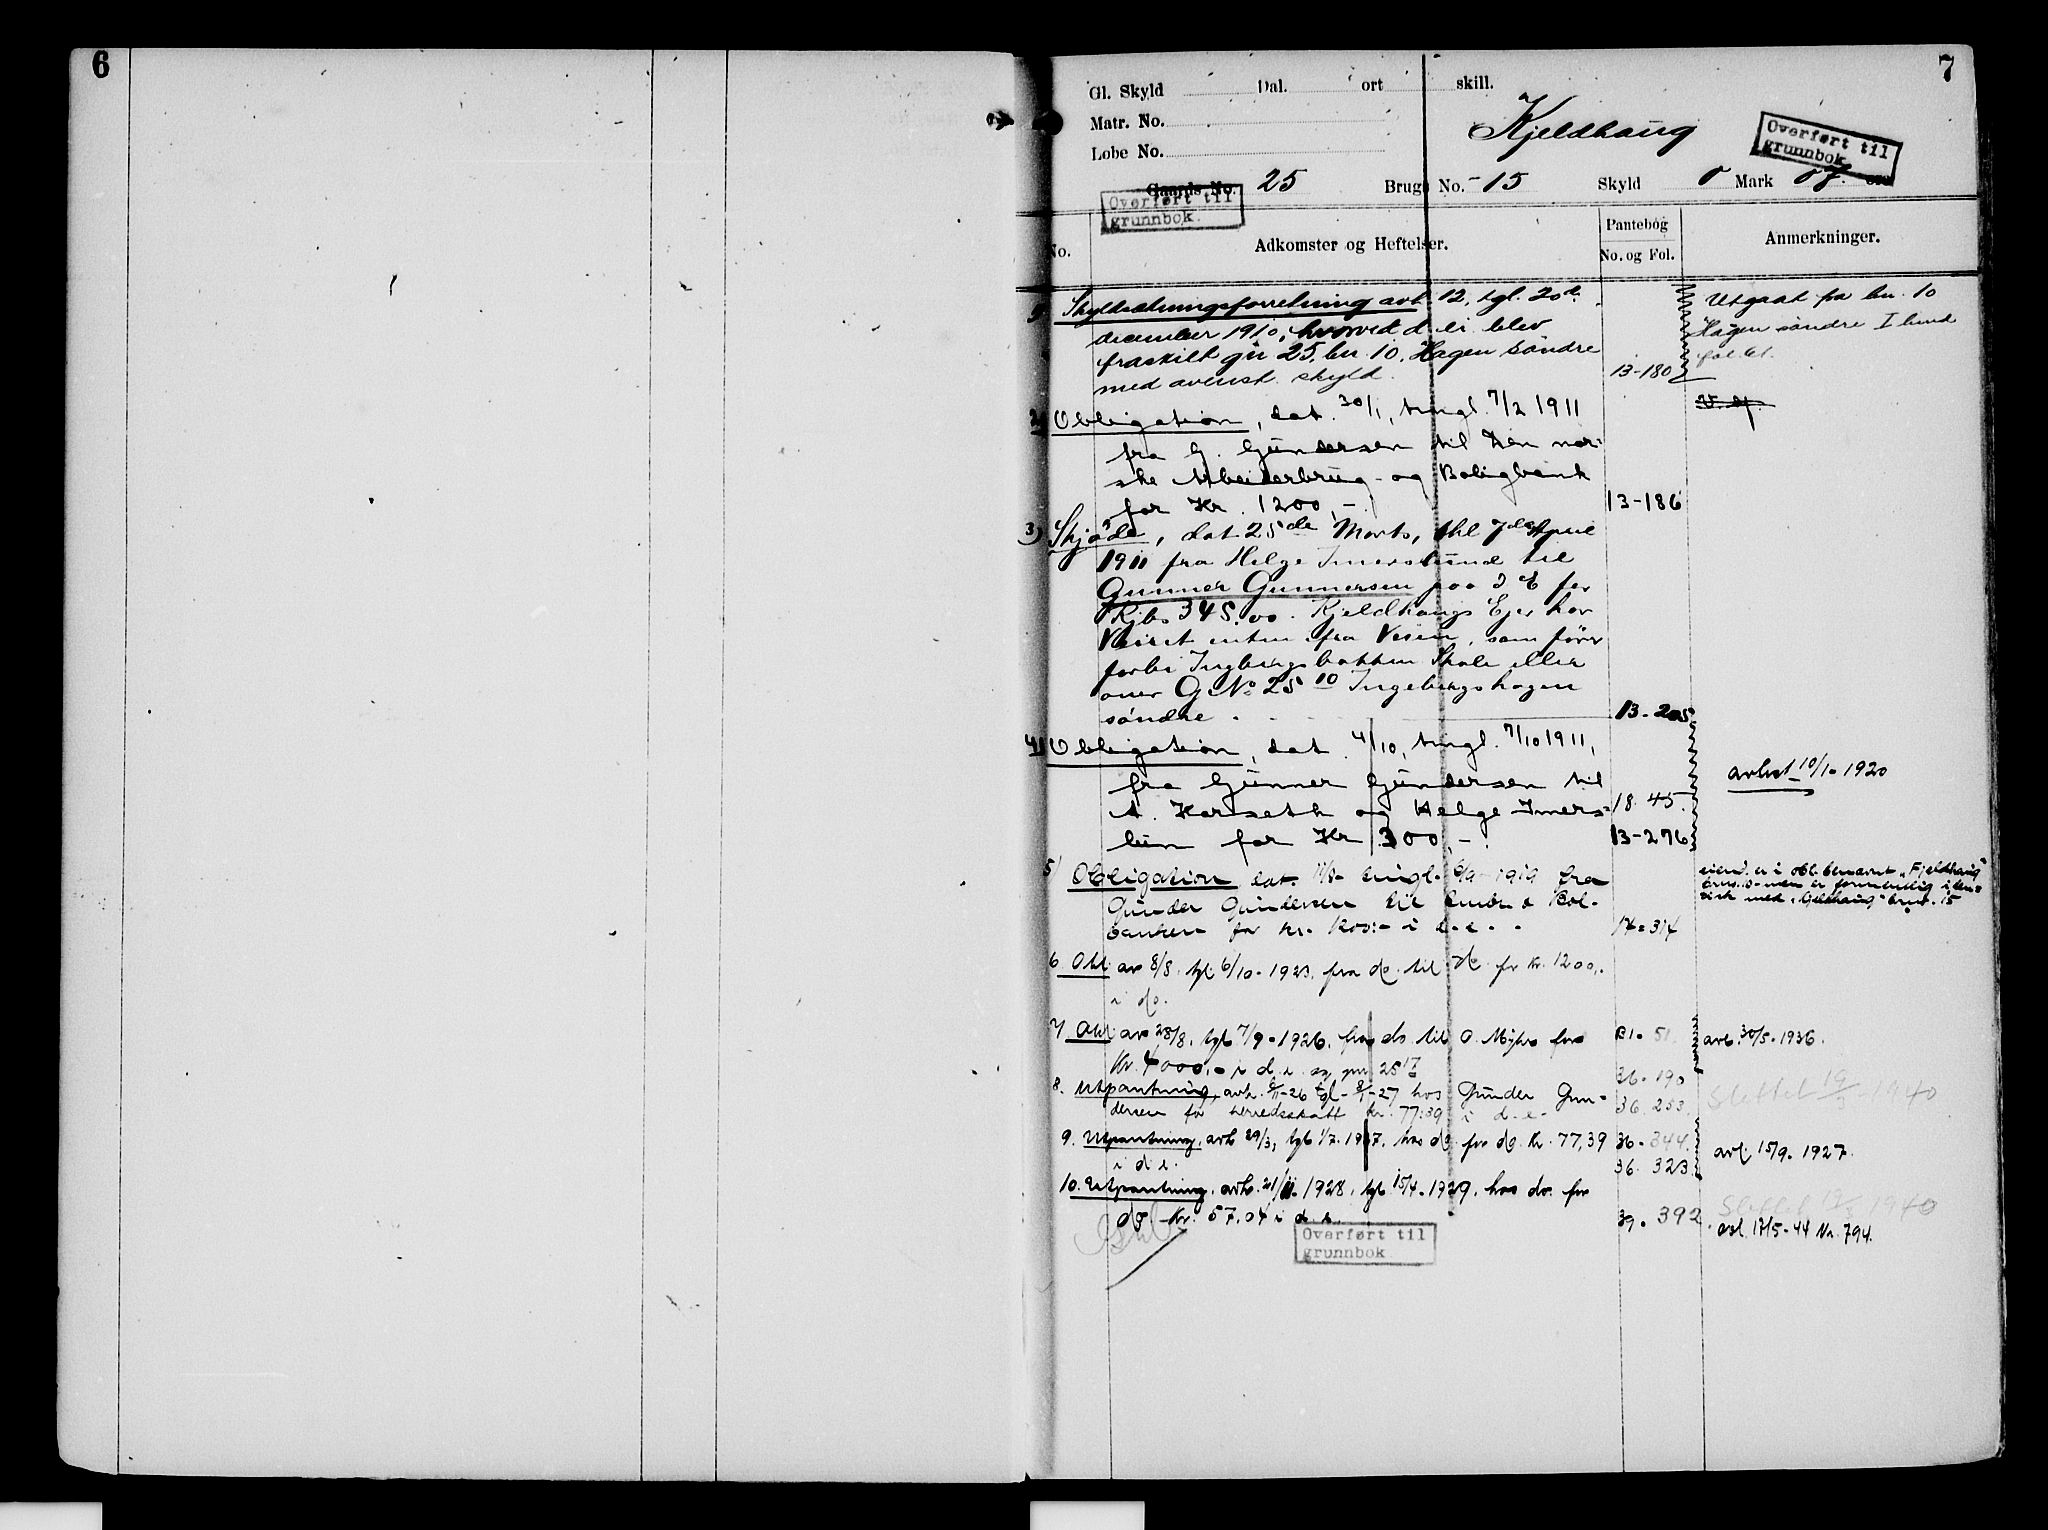 6
7
Gl. Skyld Dal. ort skill.
Matr. No.
Lobe No.
Kjeldhaug
Overført til
grunnbok
Gaards No. 25 Brugs No. 15 Skyld 0 Mark 08 øre
Overført til
grunnbok
No. Adkomster og Heftelser. Pantebog No. og Fol. Anmerkninger.
Skyldsætningsforretning avh. 12, tgl. 20d
december 1910, hvorved d. ei. blev
fraskilt gn 25, bn. 10, Hagen søndre
med avenst. skyld. 13-180
Utgaat fra bn. 10
Hagen søndre I bind
fol. 61.
2) Obligation, dat. 30/1, tingl. 7/2 1911
fra G. Gundersen til Den nor-
ske Arbeiderbrug- og Boligbank
for Kr. 1200,-. 13-186
3) Skjøde, dat 25de Marts, thl 7de April
1911 fra Helge Imerslund til
Gunner Gunnersen paa d E for
Kjbs 345.00. Kjeldhaugs Ejer har
Veiret enten fra Veien, som fører
forbi Ingbergsbakken Skole eller
over G No 25 10 Ingebergshagen
søndre. 13-205
4) Obligation, dat. 4/10, tingl. 7/10 1911,
fra Gunner Gundersen til
A. Karseth og Helge Imers- 18. 45.
lun for Kr 300,-. 13-276
avlest 10/10 1920
5) Obligation dat. 11/8 tingl. 6/9-1919 fra
Gunder Gundersen til Småbr. & Bol-
banken for kr. 1200:- i d. e. 14-314
eiend. er i obl. benævnt "Fjeldhaug"
brnr. 10 - men er formentlig iden-
tisk med "Gjeldhaug" brnr. 15
6. Obl. av 8/8, tgl. 6/10-1923, fra do. til do. for kr. 1200,-
i do.
7. Obl. av 28/8, tgl 7/9-1926, fra do. til O. Myhre for B1. 51.
Kr. 4000,- i d. e. og gnr 25 17 36. 190
avl. 30/5-1936.
8. Utpantning, avh. 6/11-26 tgl- 8/1-27 hos Gunder Gun-
dersen for herredsskatt kr. 77:39 i d. e. 36. 253.
Slettet 19/3-1940
9. Utpantning, avh 29/3, tgl 1/7. 1927, hos do. for do. Kr. 77,39 36. 344.
i d. e. 36. 323.
avl. 15/9. 1927.
10. Utpantning, avh. 21/11. 1928, tgl 15/4. 1929, hos do. for
do Kr. 57.04 i d. e. 39. 392.
Slettet 1940
avl. 17/5-44 Nr. 794.
Overført til
grunnbok